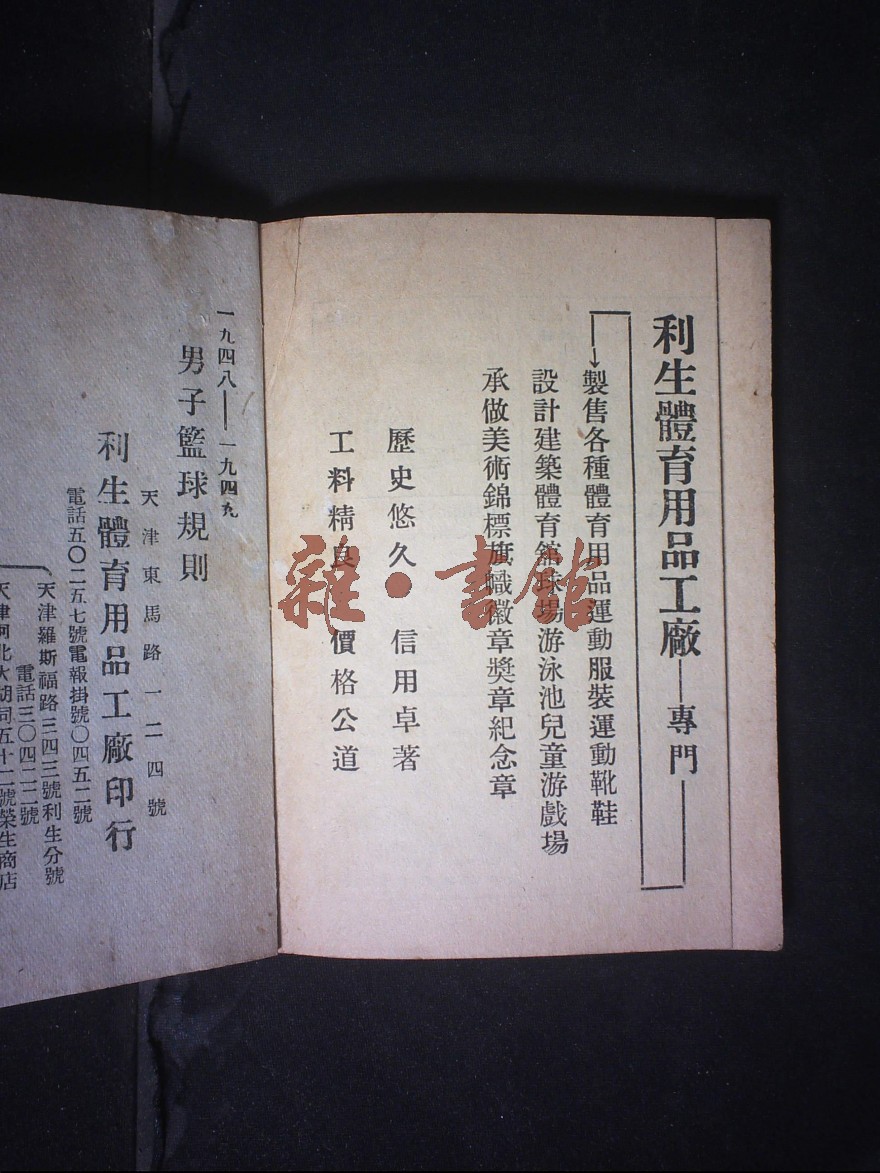 利生體育用品工廠——專門
製售各種體育用品運動服裝運動靴鞋
設計建築體育館球場游泳池兒童游戲場
承做美術錦標旗幟徽章獎章紀念章
歷史悠久 信用卓著
工料精良 價格公道
一九四八——一九四九
男子籃球規則
天津東馬路一二四號
利生體育用品工廠印行
電話五〇二五七號電報掛號〇四五二號
天津羅斯福路三四三號利生分號
電話三〇四二二號
天津河北大胡同五十二號榮生商店
雜·書館